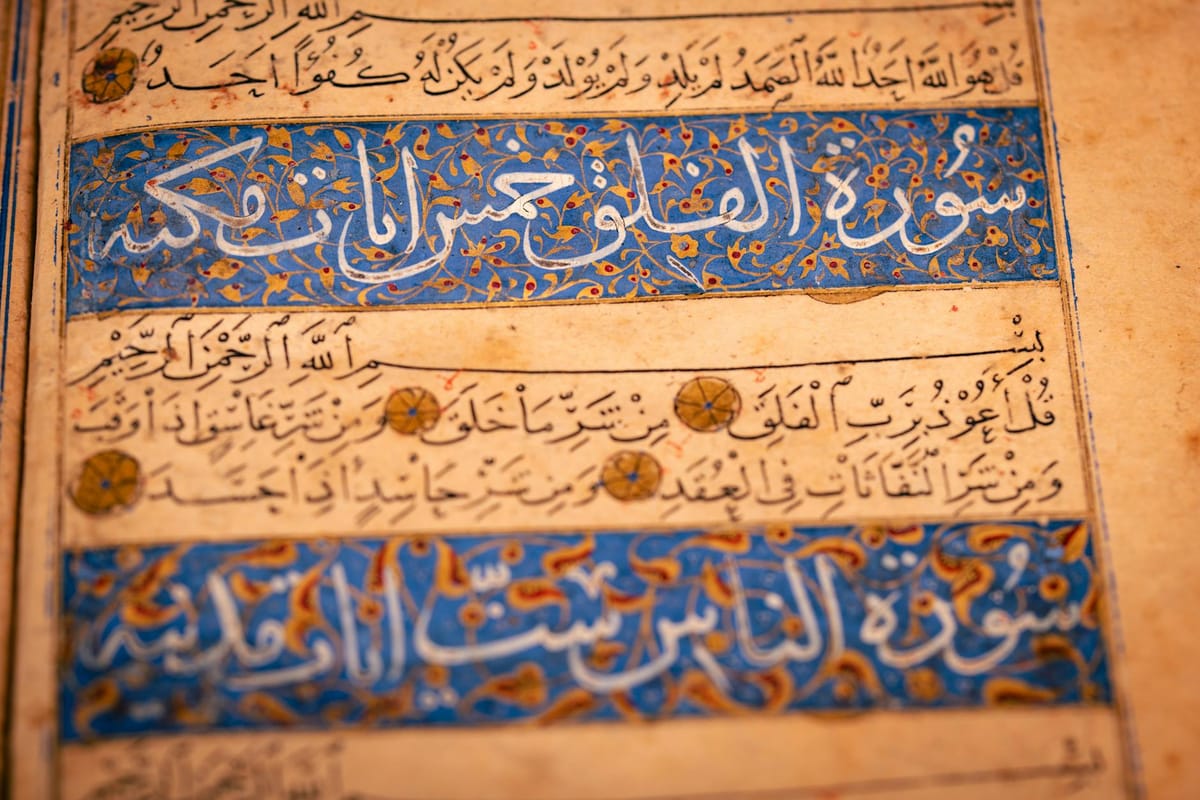 بسم الله الرحمن الرحيم
قُلْ هُوَ اللَّهُ اَحَدٌ اَللَّهُ الصَّمَدُ لَمْ يَلِدْ وَلَمْ يُوْلَدْ وَلَمْ يَكُنْ لَهُ كُفُؤًا اَحَدٌ
سُورة الفلق خمس ايات مكية
بِسْمِ اللَّهِ الرَّحْمٰنِ الرَّحِيْمِ
قُلْ أَعُوْذُ بِرَبِّ الْفَلَقِ مِنْ شَرِّ مَا خَلَقَ وَمِنْ شَرِّ غَاسِقٍ اِذَا وَقَبَ
وَمِنْ شَرِّ النَّفَّاثَاتِ فِي الْعُقَدِ وَمِنْ شَرِّ حَاسِدٍ اِذَا حَسَدَ
سُورة الناس ستّ ايات مدنية